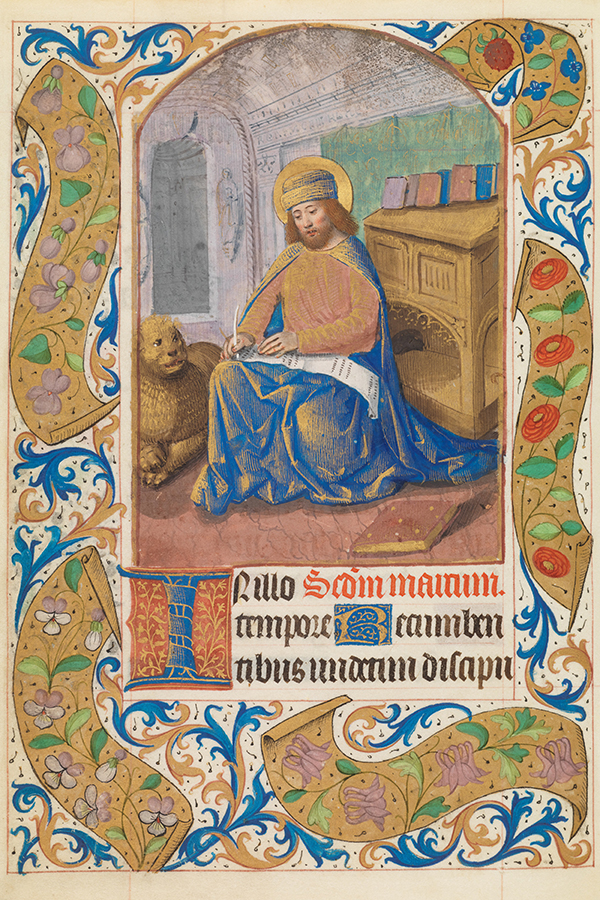 IN illo Scdm marcum.
tempore Recumben
tibus undecim discipu